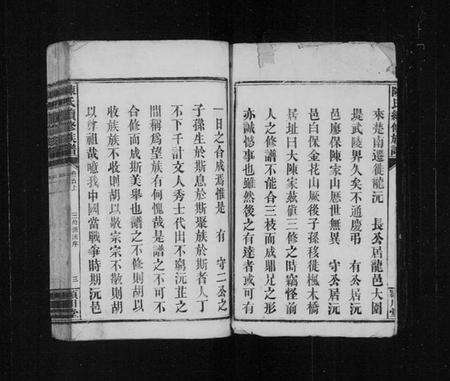 來楚南遷徙龍沅 長公居龍邑大園
堤武陵界久矣不通慶弔 有公居沅
邑廖保陳家山厥世無異 守公居沅
邑白保金花山厥後子孫移徙楓木橋
居址曰大陳家菽歡三修之時竊怪前
人之修譜不能合三枝而成賜兄之形
亦誠憾事也雖然後之有達者或可有
一日之合成爲權是 有守二公之
子孫生於斯息於斯聚族於斯者人丁
不下千計文人秀士代田不窮沅芷之
間稱爲望族有何愧哉是譜之不可不
合修而成斯美舉也譜之不修則胡以
收族族不收則胡以敬宗宗不敬則胡
以尊祖哉噫我中國當戰爭時期沅邑
三